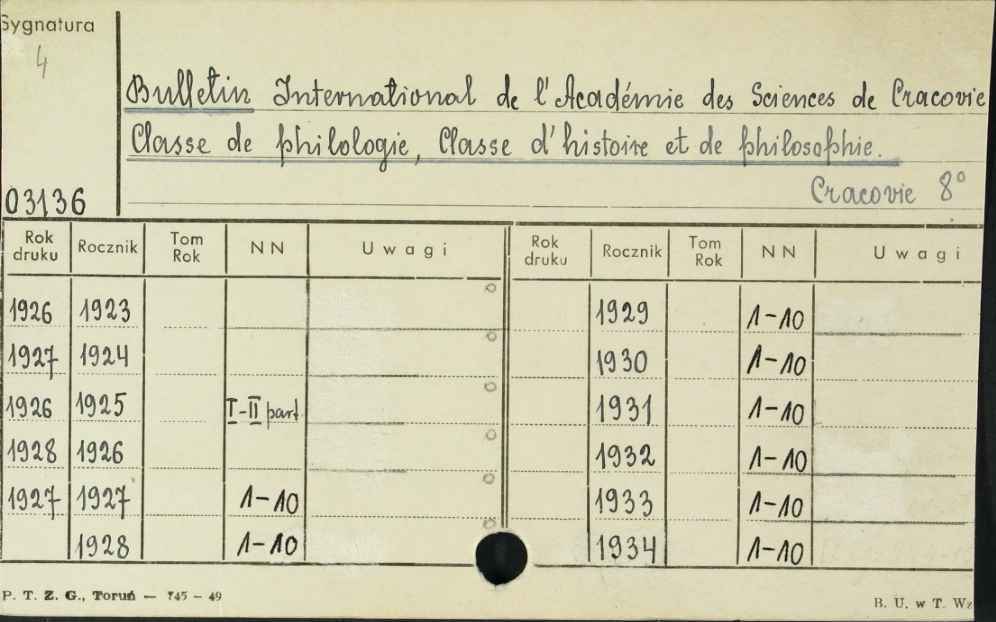 Sygnatura
4
Bulletin International de l'Académie des Sciences de Cracovie
Classe de philologie, Classe d'histoire et de philosophie.
Cracovie 8°
03136
Rok druku Rocznik Tom Rok NN Uwagi Rok druku Rocznik Tom Rok NN Uwagi
1926 1923 1929 1-10
1927 1924 1930 1-10
1926 1925 I-II part 1931 1-10
1928 1926 1932 1-10
1927 1927 1-10 1933 1-10
1928 1-10 1934 1-10
P. T. Z. G., Toruń — 745 – 49
B. U. w T. Wz